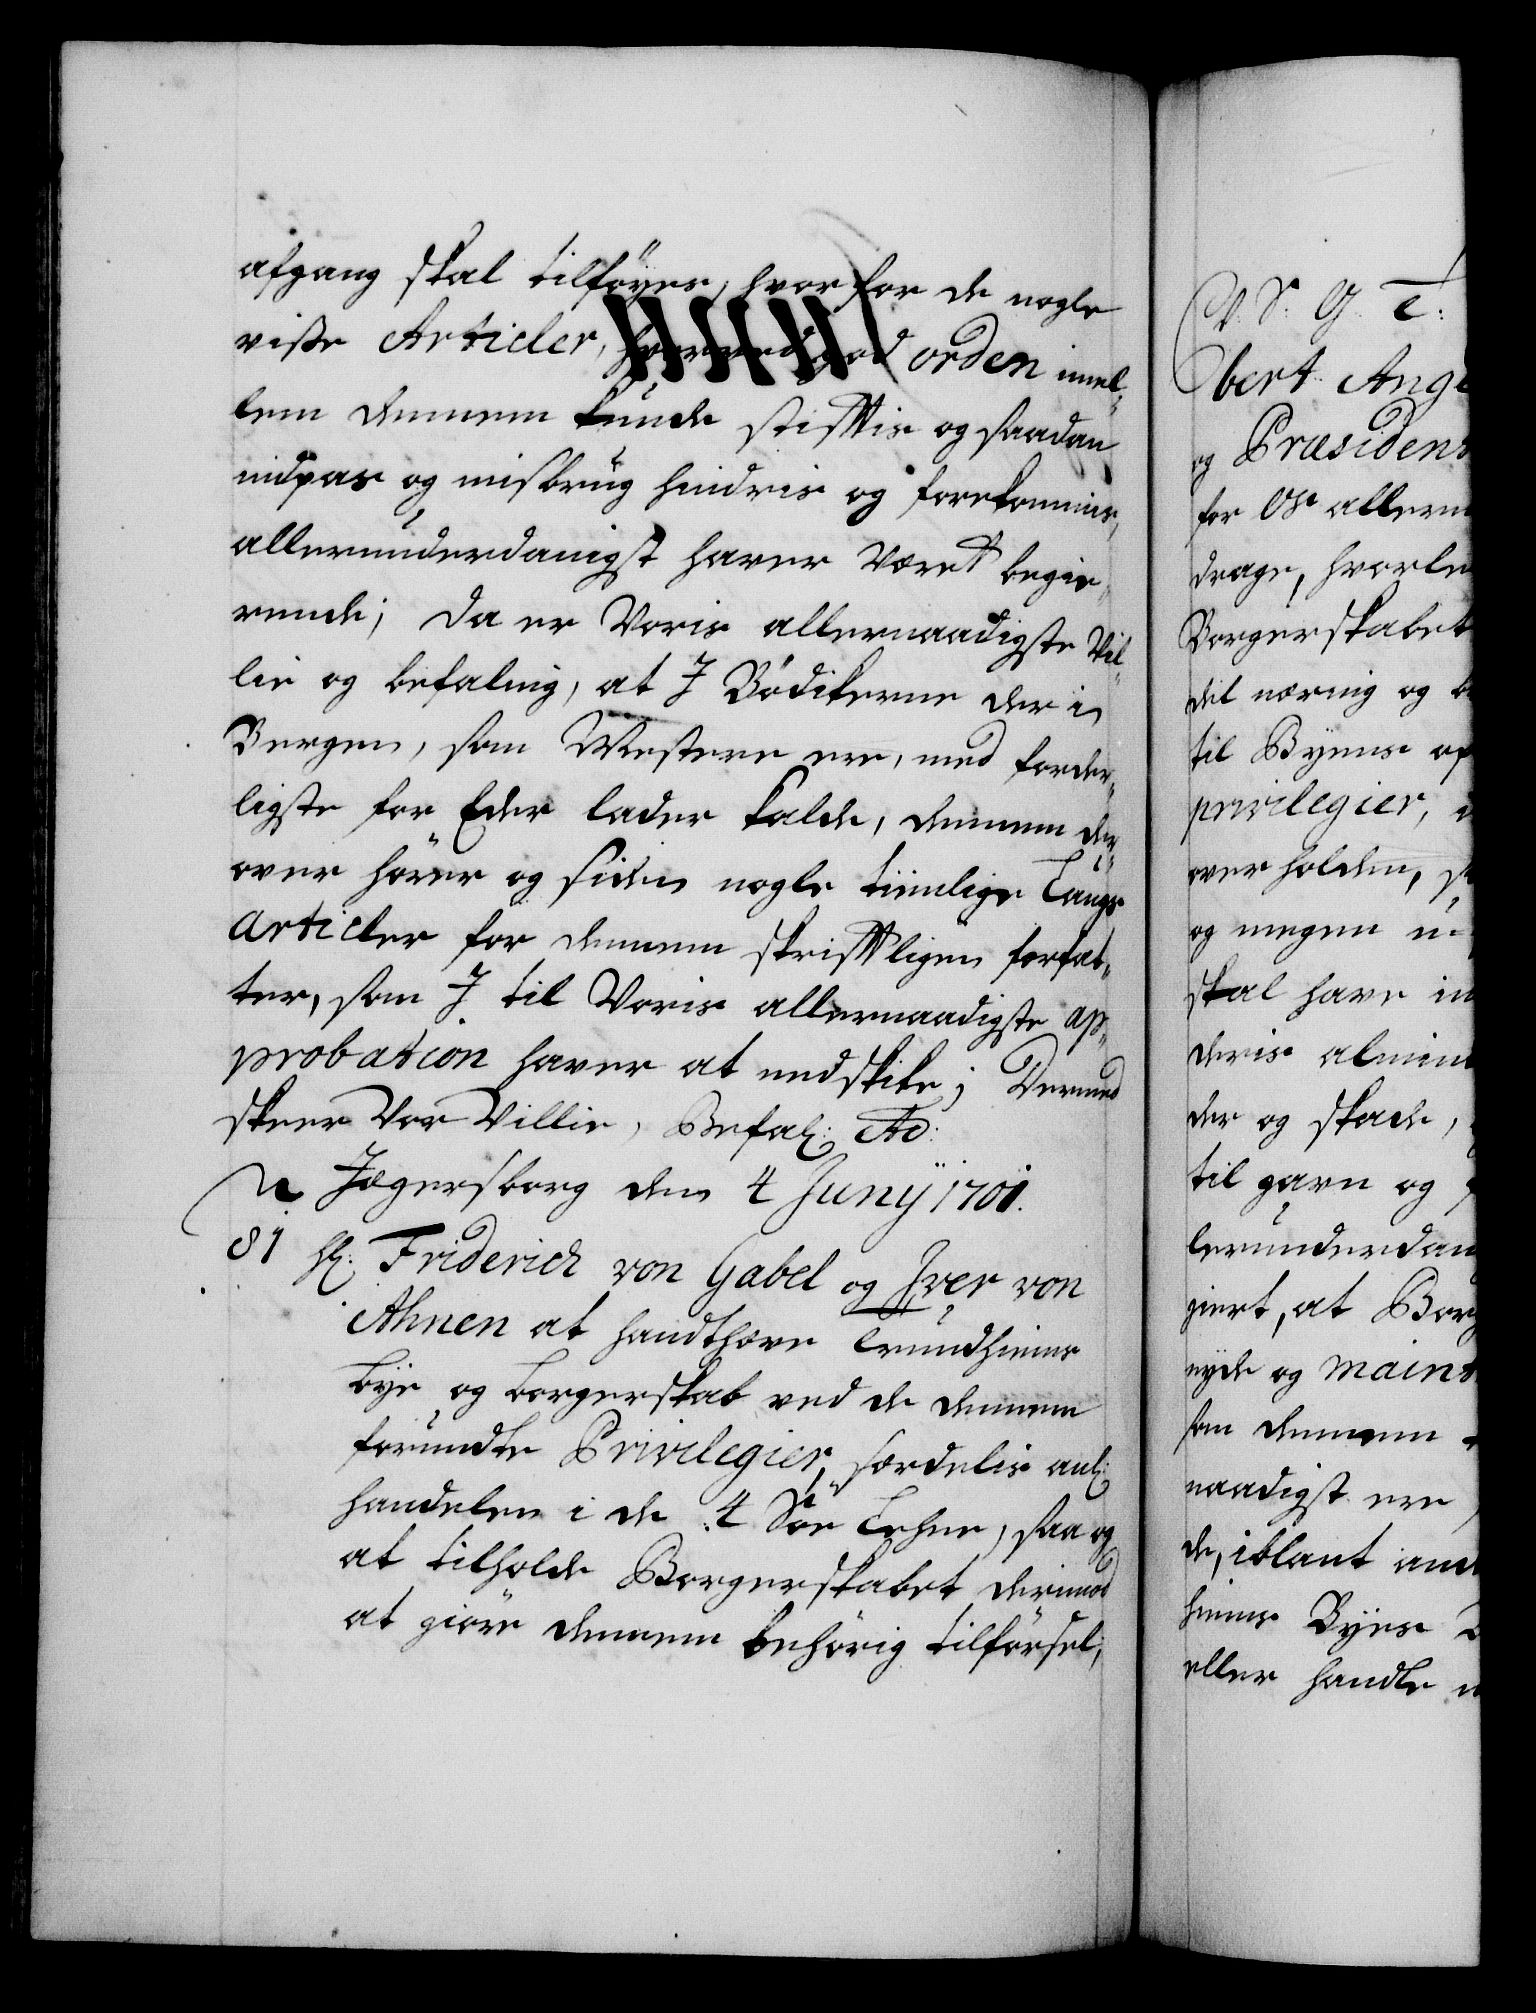 afgang skal tilføyes, hvorfor de nogle
visse Articler, hvorved god orden imel-
lem dennem kunde stifftis og saadan
indpas og misbrug hindris og forekommis,
allerunderdanigst haver været begie-
rende; Da er Voris allernaadigste Vil-
lie og befaling, at I Bødikerne der i
Bergen, som Mestere ere, med forder-
ligste for Eder lader kalde, dennem der-
over hører og siden nogle tienlige Laugs
Articler for dennem skrifftligen forfat-
ter, som I til Voris allernaadigste ap-
probation haver at nedskike; Dermed
skeer Vor Villie, Befal: Ad:
Jægersborg den 4 Junÿ 1701.
81 Hl: Friderich von Gabel og Iver von
Ahnen at handthæve Trundhiems
bye og borgerskab ved de dennem
forundte Privilegier, særdelis anl:
handelen i de 4 Søe Lehne, saa og
at tilholde Borgerskabet derimod
at giøre dennem behørig tilførsel,
V. S. G. T:
bert Ang
og Præsident
for Os allern
drage, hvorle
Borgerskabet
del næring og b
til Byens op
privilegier,
over holden, s
og megen u
skal have in
deris almin
der og skade,
til gavn og
lerunderdan
giert, at Borg
nyde og maint
som dennem
naadigst ere
de, iblant and
hiems Byes
eller handle